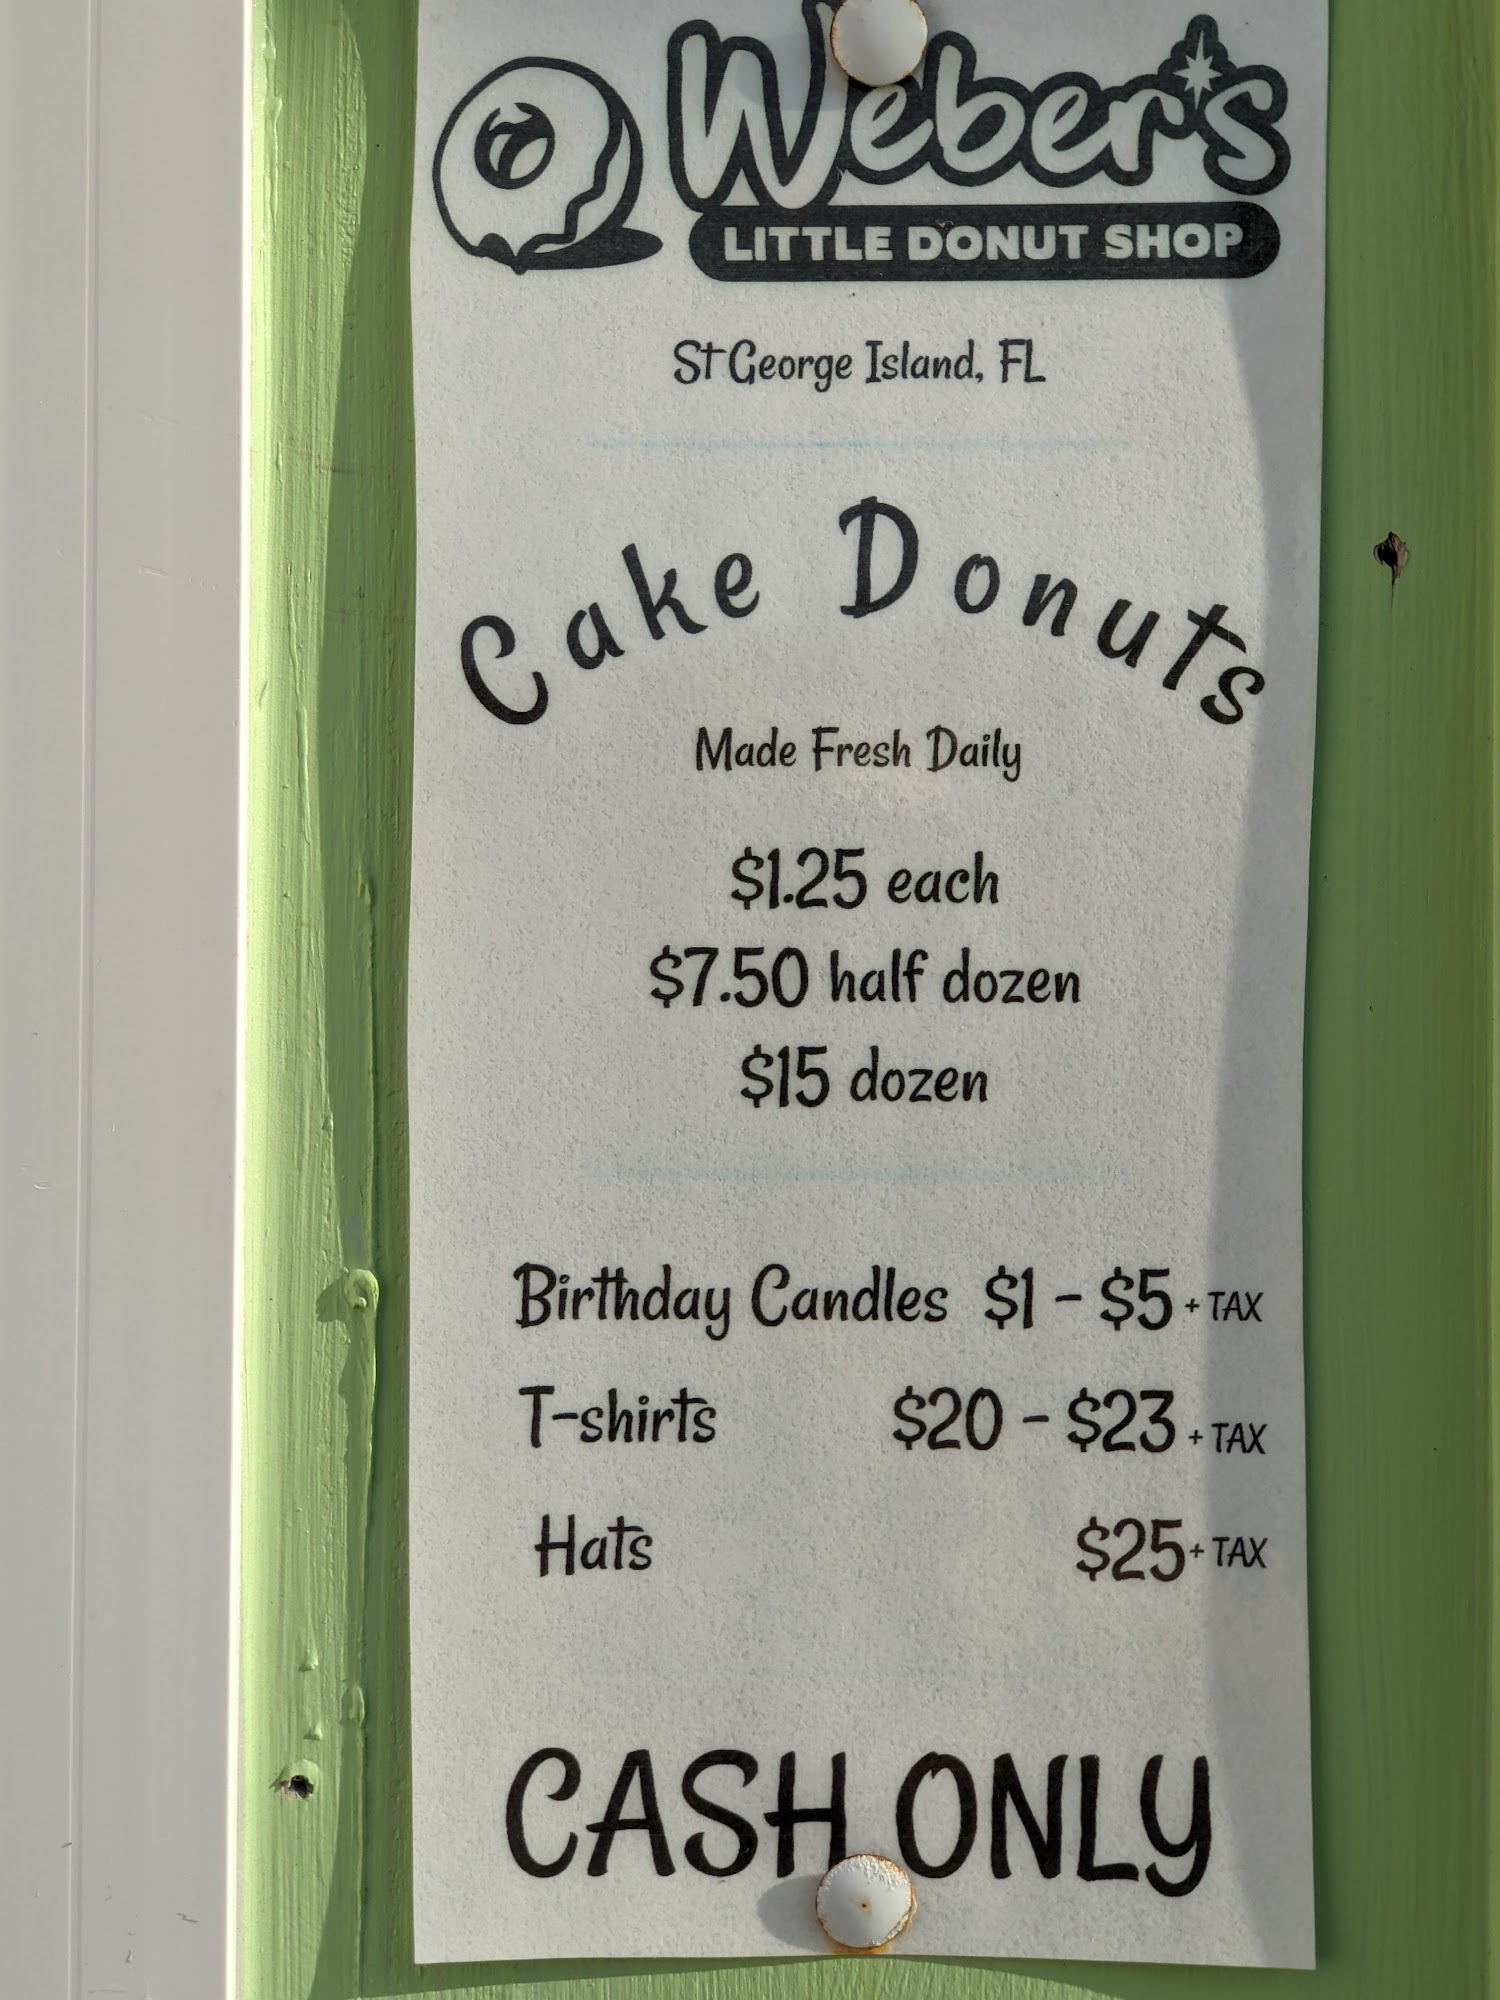 Weber's
LITTLE DONUT SHOP
St George Island, FL
Cake Donuts
Made Fresh Daily
$1.25 each
$7.50 half dozen
$15 dozen
Birthday Candles $1 - $5 + TAX
T-shirts $20 - $23 + TAX
Hats $25 + TAX
CASH ONLY